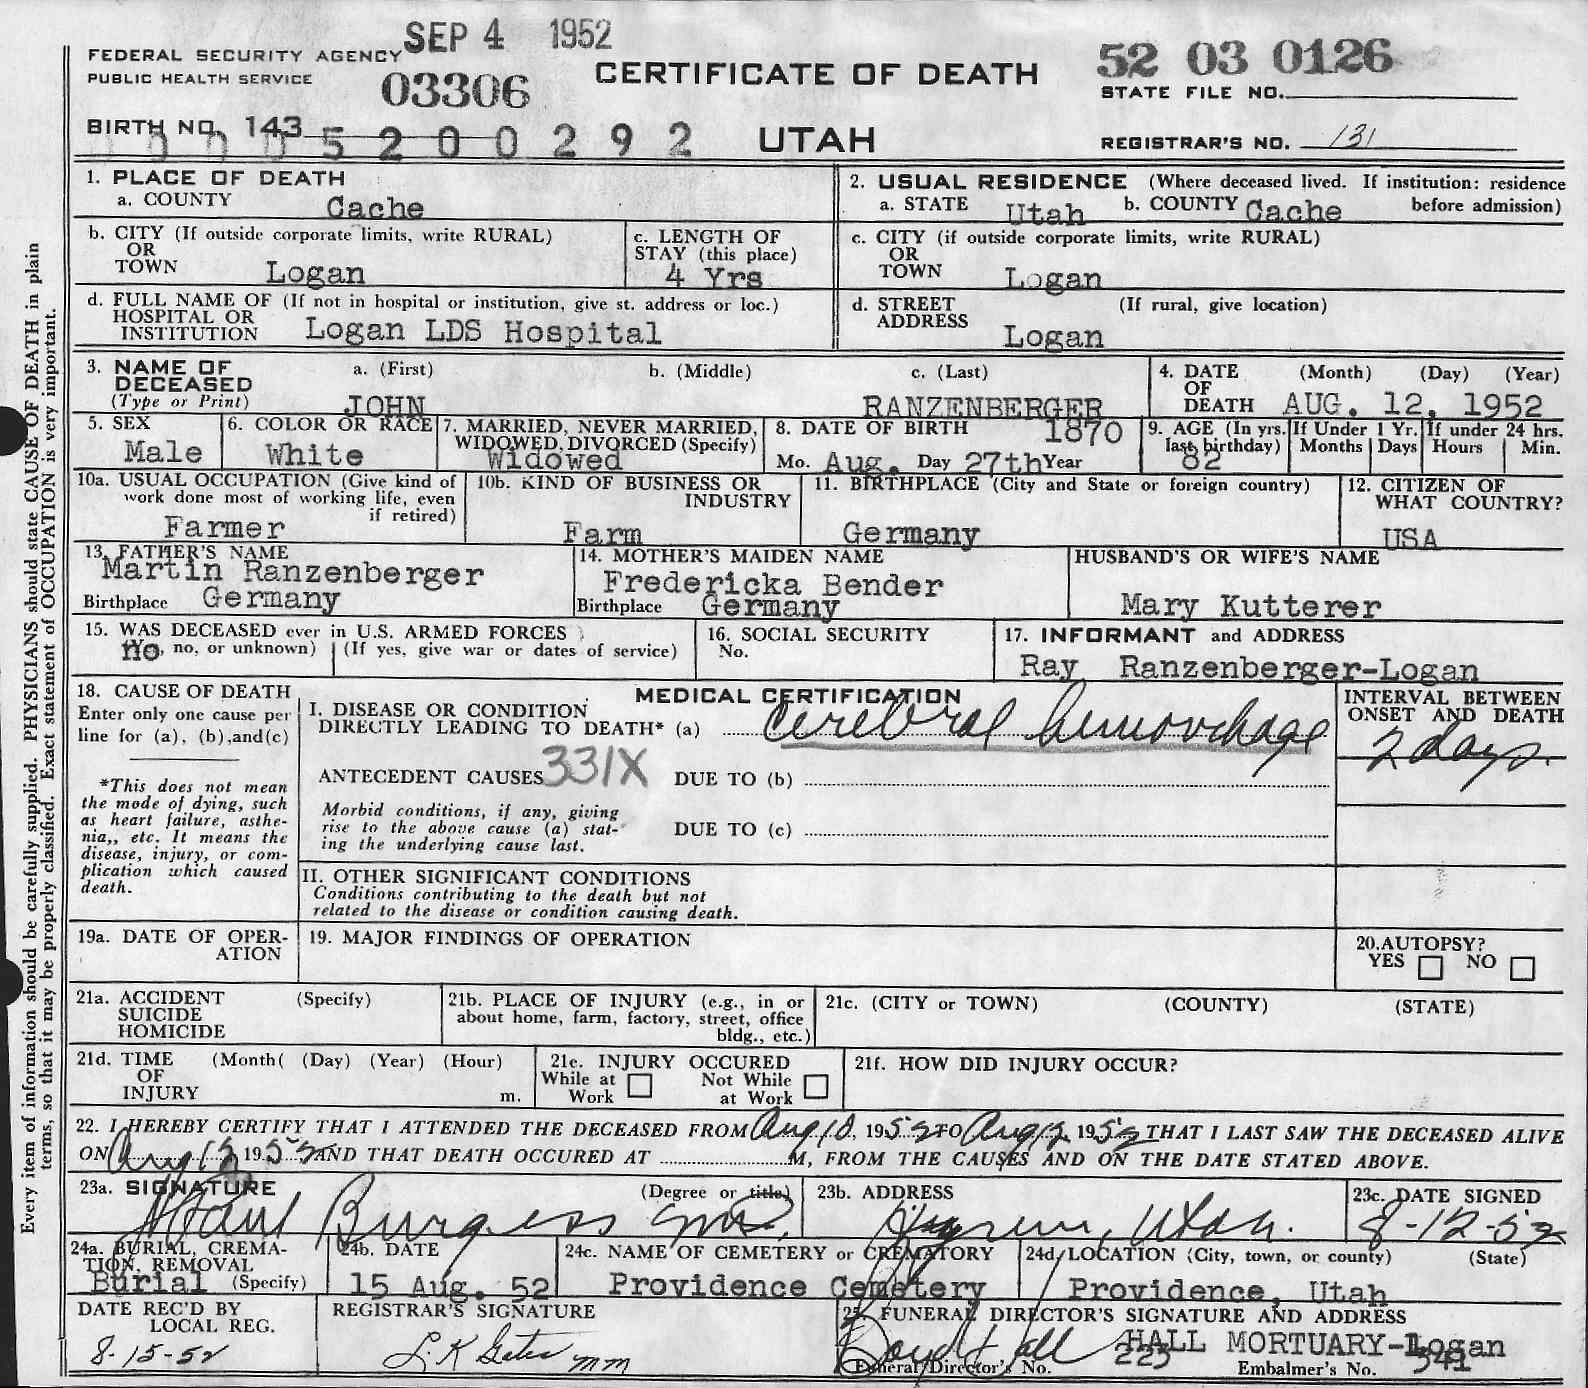 SEP 4 1952
FEDERAL SECURITY AGENCY
PUBLIC HEALTH SERVICE
03306
CERTIFICATE OF DEATH
52 03 0126
STATE FILE NO.
BIRTH NO. 143
5200292
UTAH
REGISTRAR'S NO. 131
1. PLACE OF DEATH
a. COUNTY Cache
2. USUAL RESIDENCE (Where deceased lived. If institution: residence before admission)
a. STATE Utah b. COUNTY Cache
b. CITY (If outside corporate limits, write RURAL)
OR
TOWN Logan
c. LENGTH OF
STAY (this place)
4 Yrs
c. CITY (if outside corporate limits, write RURAL)
OR
TOWN Logan
d. FULL NAME OF (If not in hospital or institution, give st. address or loc.)
HOSPITAL OR
INSTITUTION Logan LDS Hospital
d. STREET (If rural, give location)
ADDRESS
Logan
3. NAME OF a. (First) b. (Middle) c. (Last)
DECEASED
(Type or Print) JOHN RANZENBERGER
4. DATE (Month) (Day) (Year)
OF
DEATH AUG. 12, 1952
5. SEX
Male
6. COLOR OR RACE
White
7. MARRIED, NEVER MARRIED,
WIDOWED, DIVORCED (Specify)
Widowed
8. DATE OF BIRTH 1870
Mo. Aug. Day 27th Year
9. AGE (In yrs. last birthday)
82
If Under 1 Yr.
Months Days
If under 24 hrs.
Hours Min.
10a. USUAL OCCUPATION (Give kind of
work done most of working life, even
if retired)
Farmer
10b. KIND OF BUSINESS OR
INDUSTRY
Farm
11. BIRTHPLACE (City and State or foreign country)
Germany
12. CITIZEN OF
WHAT COUNTRY?
USA
13. FATHER'S NAME
Martin Ranzenberger
Birthplace Germany
14. MOTHER'S MAIDEN NAME
Fredericka Bender
Birthplace Germany
HUSBAND'S OR WIFE'S NAME
Mary Kutterer
15. WAS DECEASED ever in U.S. ARMED FORCES
no, no, or unknown) (If yes, give war or dates of service)
16. SOCIAL SECURITY
No.
17. INFORMANT and ADDRESS
Ray Ranzenberger-Logan
18. CAUSE OF DEATH
Enter only one cause per
line for (a), (b), and (c)
*This does not mean
the mode of dying, such
as heart failure, asthe-
nia,, etc. It means the
disease, injury, or com-
plication which caused
death.
MEDICAL CERTIFICATION
I. DISEASE OR CONDITION
DIRECTLY LEADING TO DEATH* (a) Cerebral hemorrhage
INTERVAL BETWEEN
ONSET AND DEATH
2 days.
ANTECEDENT CAUSES 331X DUE TO (b)
Morbid conditions, if any, giving
rise to the above cause (a) stat-
ing the underlying cause last.
DUE TO (c)
II. OTHER SIGNIFICANT CONDITIONS
Conditions contributing to the death but not
related to the disease or condition causing death.
19a. DATE OF OPER-
ATION
19. MAJOR FINDINGS OF OPERATION
20. AUTOPSY?
YES NO
21a. ACCIDENT (Specify)
SUICIDE
HOMICIDE
21b. PLACE OF INJURY (e.g., in or
about home, farm, factory, street, office
bldg., etc.)
21c. (CITY or TOWN) (COUNTY) (STATE)
21d. TIME (Month( (Day) (Year) (Hour)
OF
INJURY m.
21e. INJURY OCCURED
While at Work Not While at Work
21f. HOW DID INJURY OCCUR?
22. I HEREBY CERTIFY THAT I ATTENDED THE DECEASED FROM Aug 10, 1952 TO Aug 12, 1952 THAT I LAST SAW THE DECEASED ALIVE
ON Aug 12 1952 AND THAT DEATH OCCURED AT M, FROM THE CAUSES AND ON THE DATE STATED ABOVE.
23a. SIGNATURE (Degree or title)
Paul Burgess M.D.
23b. ADDRESS
Hyrum, Utah.
23c. DATE SIGNED
8-12-52
24a. BURIAL, CREMA-
TION, REMOVAL
Burial (Specify)
24b. DATE
15 Aug. 52
24c. NAME OF CEMETERY or CREMATORY
Providence Cemetery
24d. LOCATION (City, town, or county) (State)
Providence, Utah
DATE REC'D BY
LOCAL REG.
8-15-52
REGISTRAR'S SIGNATURE
L.K Gates mm
25. FUNERAL DIRECTOR'S SIGNATURE AND ADDRESS
Boyd Hall HALL MORTUARY-Logan
Funeral Director's No. 223 Embalmer's No. 541
Every item of information should be carefully supplied. PHYSICIANS should state CAUSE OF DEATH in plain
terms, so that it may be properly classified. Exact statement of OCCUPATION is very important.